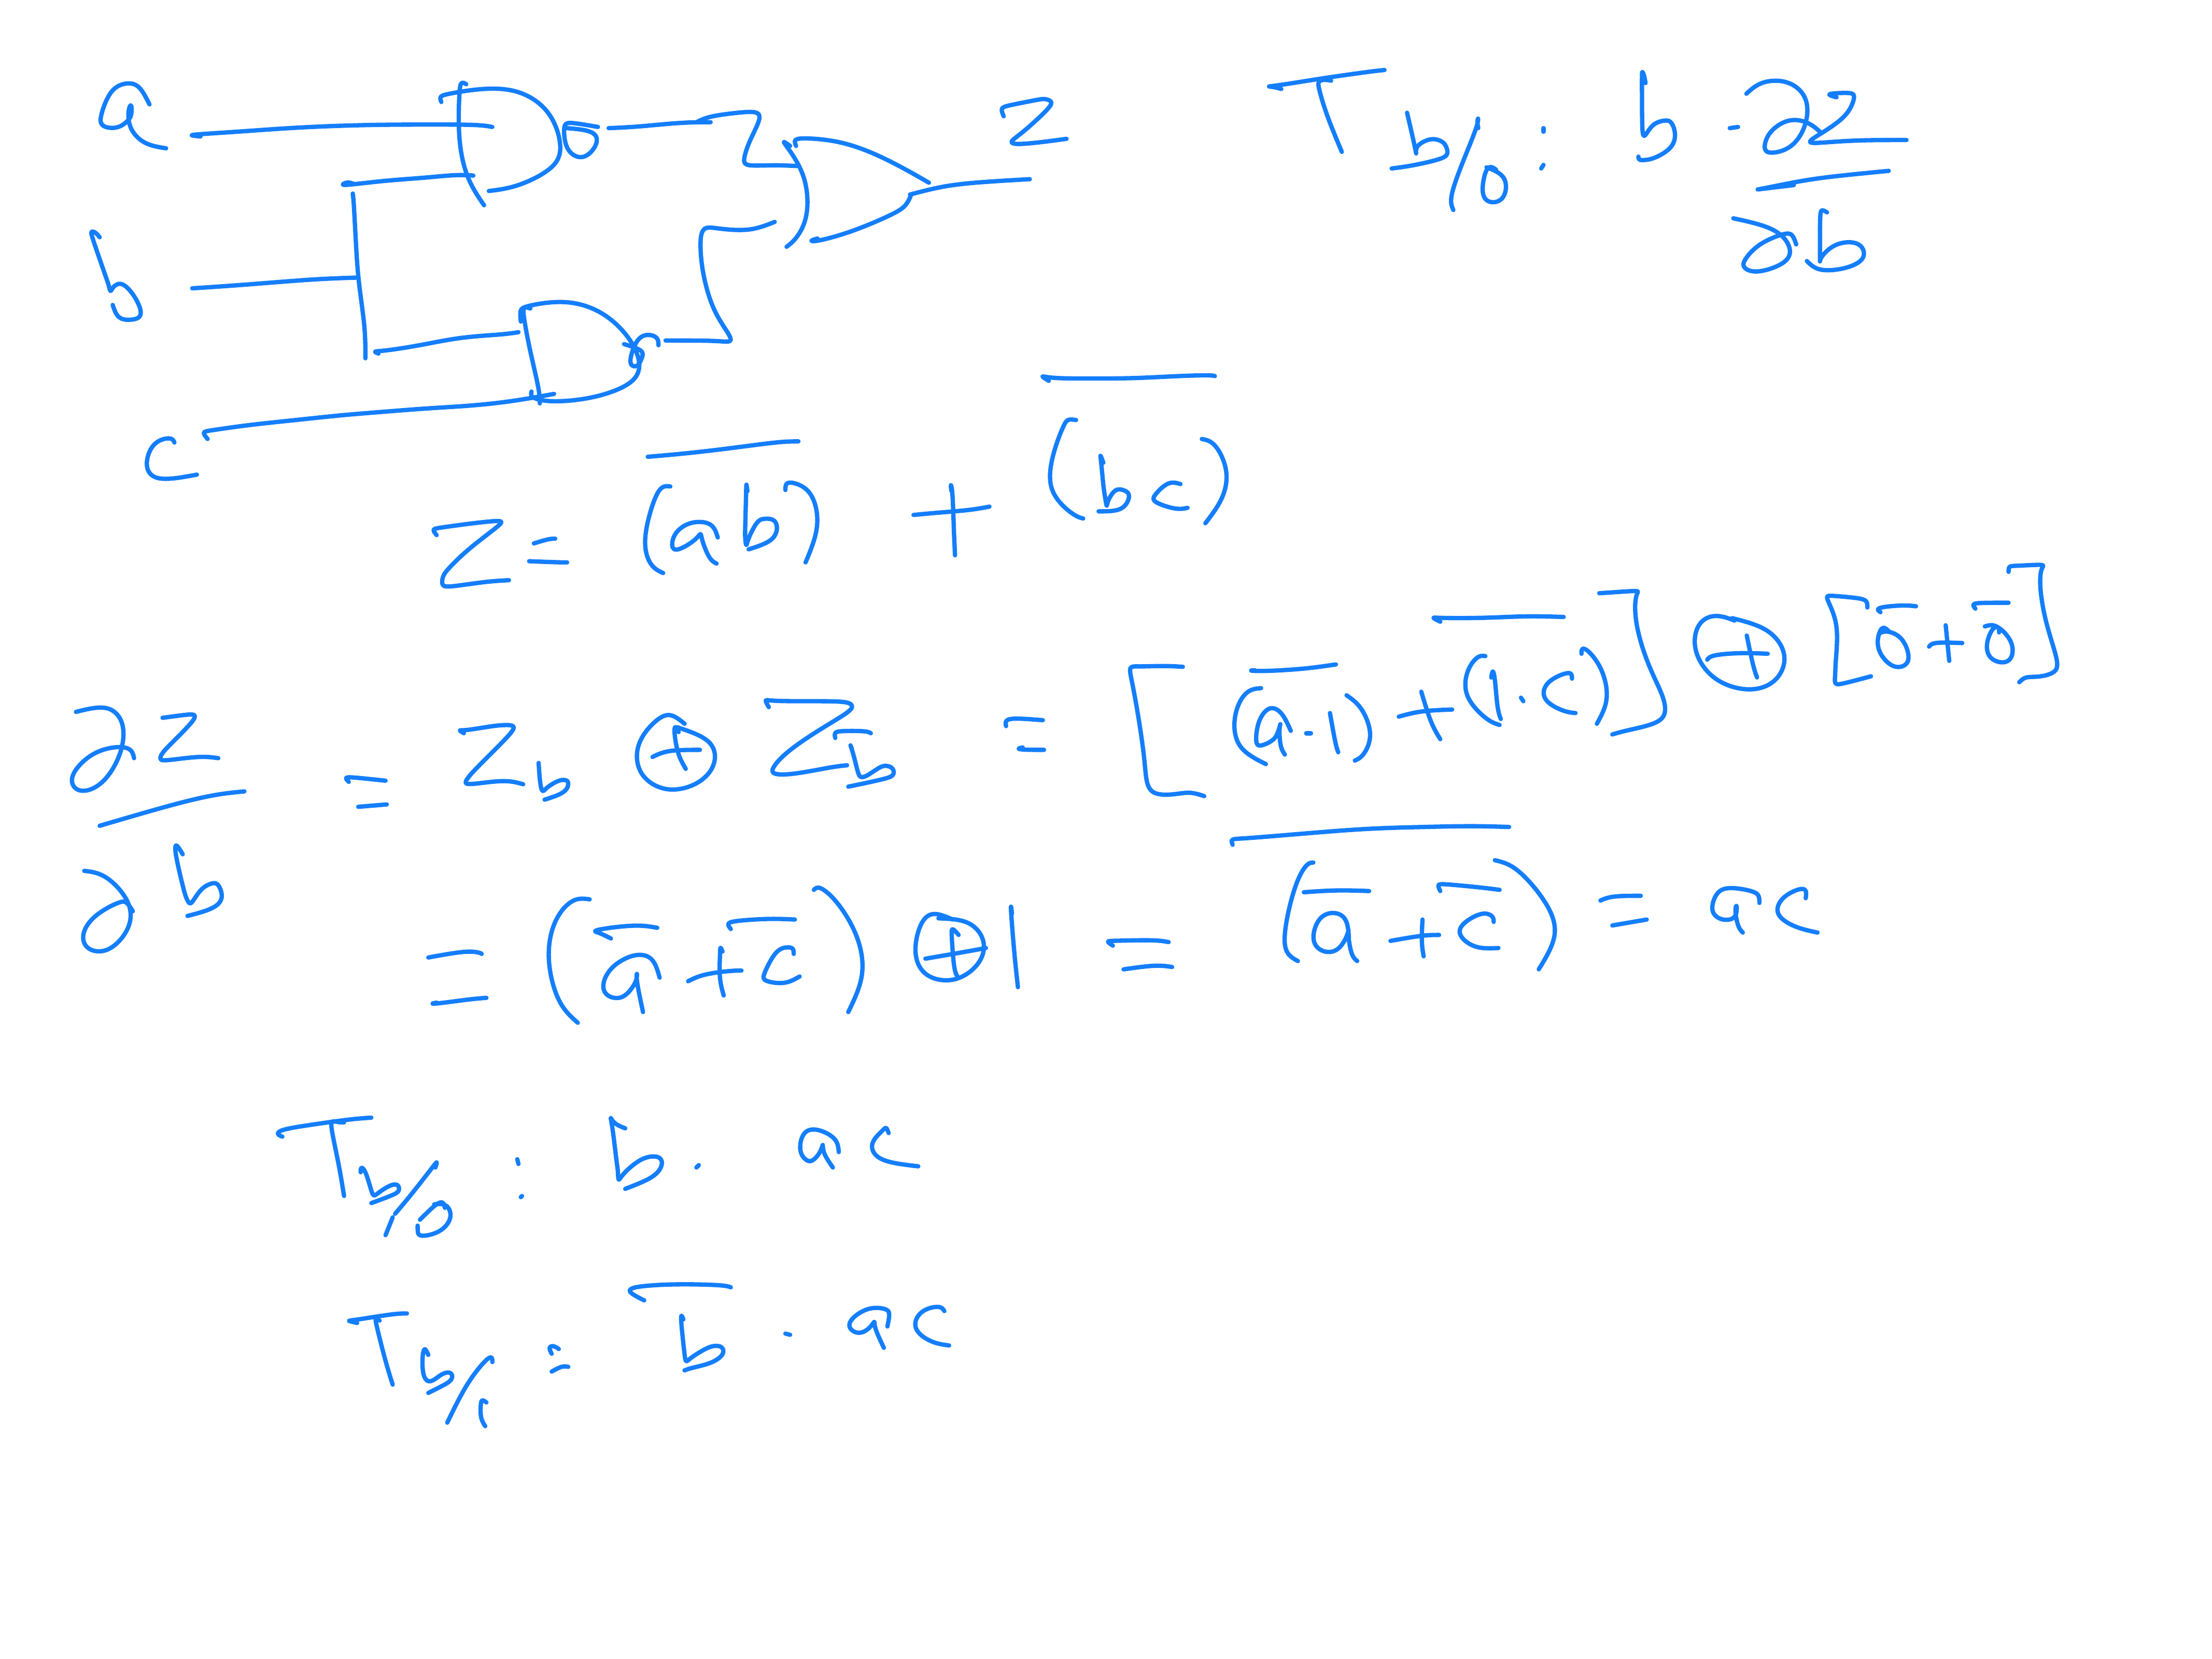 a
z
T b/0 : b · ∂z/∂b
b
c
z = \overline{(ab)} + \overline{(bc)}
∂z/∂b = z_b ⊕ z_{\overline{b}} = [\overline{(a·1)} + \overline{(1·c)}] ⊕ [\overline{0} + \overline{0}]
= (\overline{a} + \overline{c}) ⊕ 1 = \overline{(\overline{a} + \overline{c})} = ac
T b/0 : b · ac
T b/1 = \overline{b} · ac